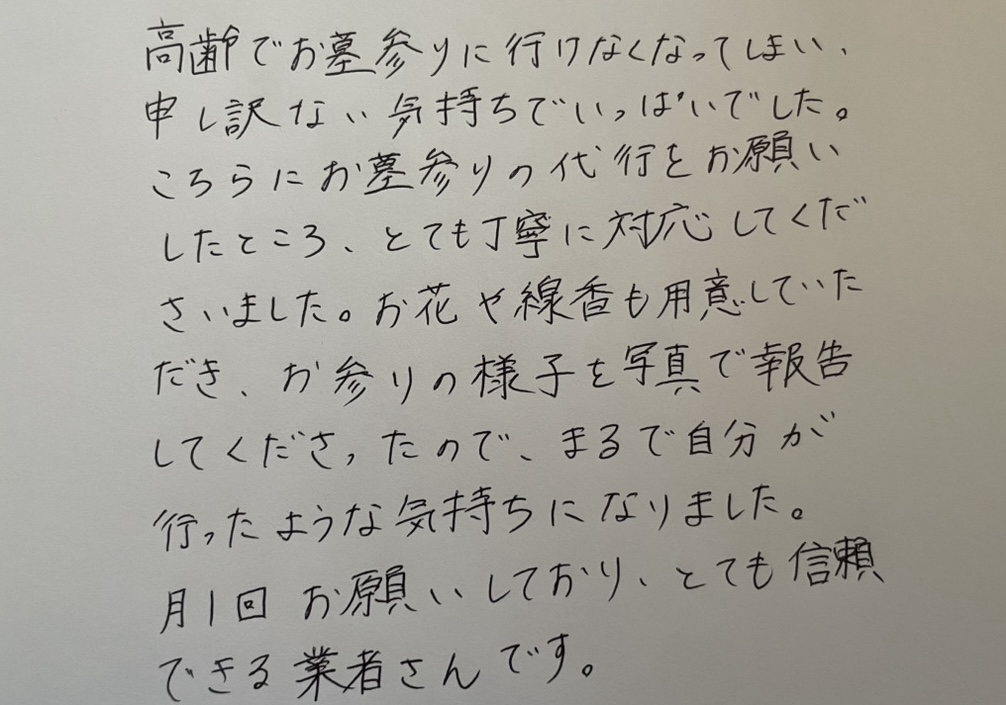 高齢でお墓参りに行けなくなってしまい、
申し訳ない気持ちでいっぱいでした。
こちらにお墓参りの代行をお願い
したところ、とても丁寧に対応してくだ
さいました。お花や線香も用意していた
だき、お参りの様子を写真で報告
してくださったので、まるで自分が
行ったような気持ちになりました。
月1回お願いしており、とても信頼
できる業者さんです。